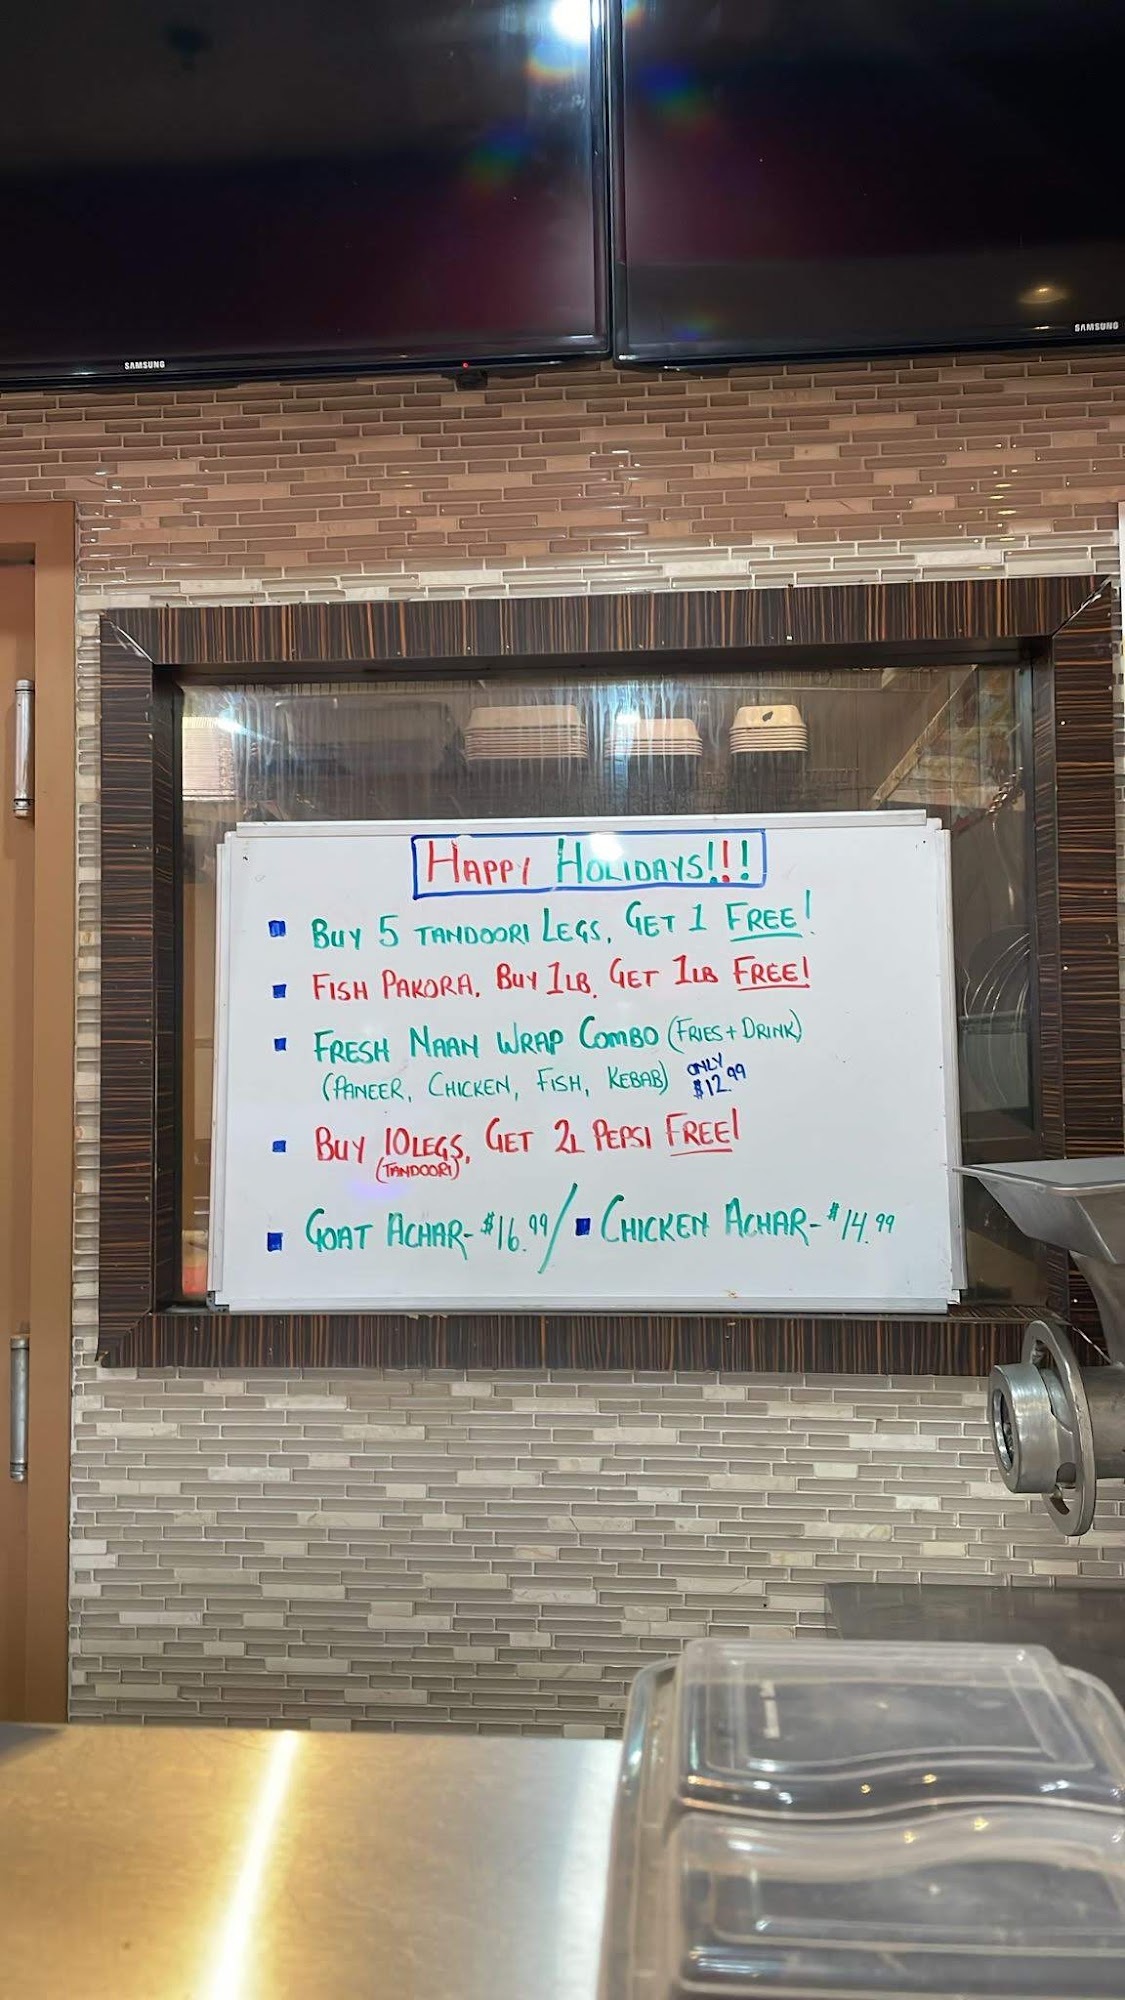 SAMSUNG
SAMSUNG
HAPPY HOLIDAYS!!!
BUY 5 TANDOORI LEGS, GET 1 FREE!
FISH PAKORA, BUY 1LB, GET 1LB FREE!
FRESH NAAN WRAP COMBO (FRIES + DRINK)
(PANEER, CHICKEN, FISH, KEBAB) ONLY $12.99
BUY 10 LEGS, GET 2L PEPSI FREE!
(TANDOORI)
GOAT ACHAR-$16.99/ CHICKEN ACHAR-$14.99